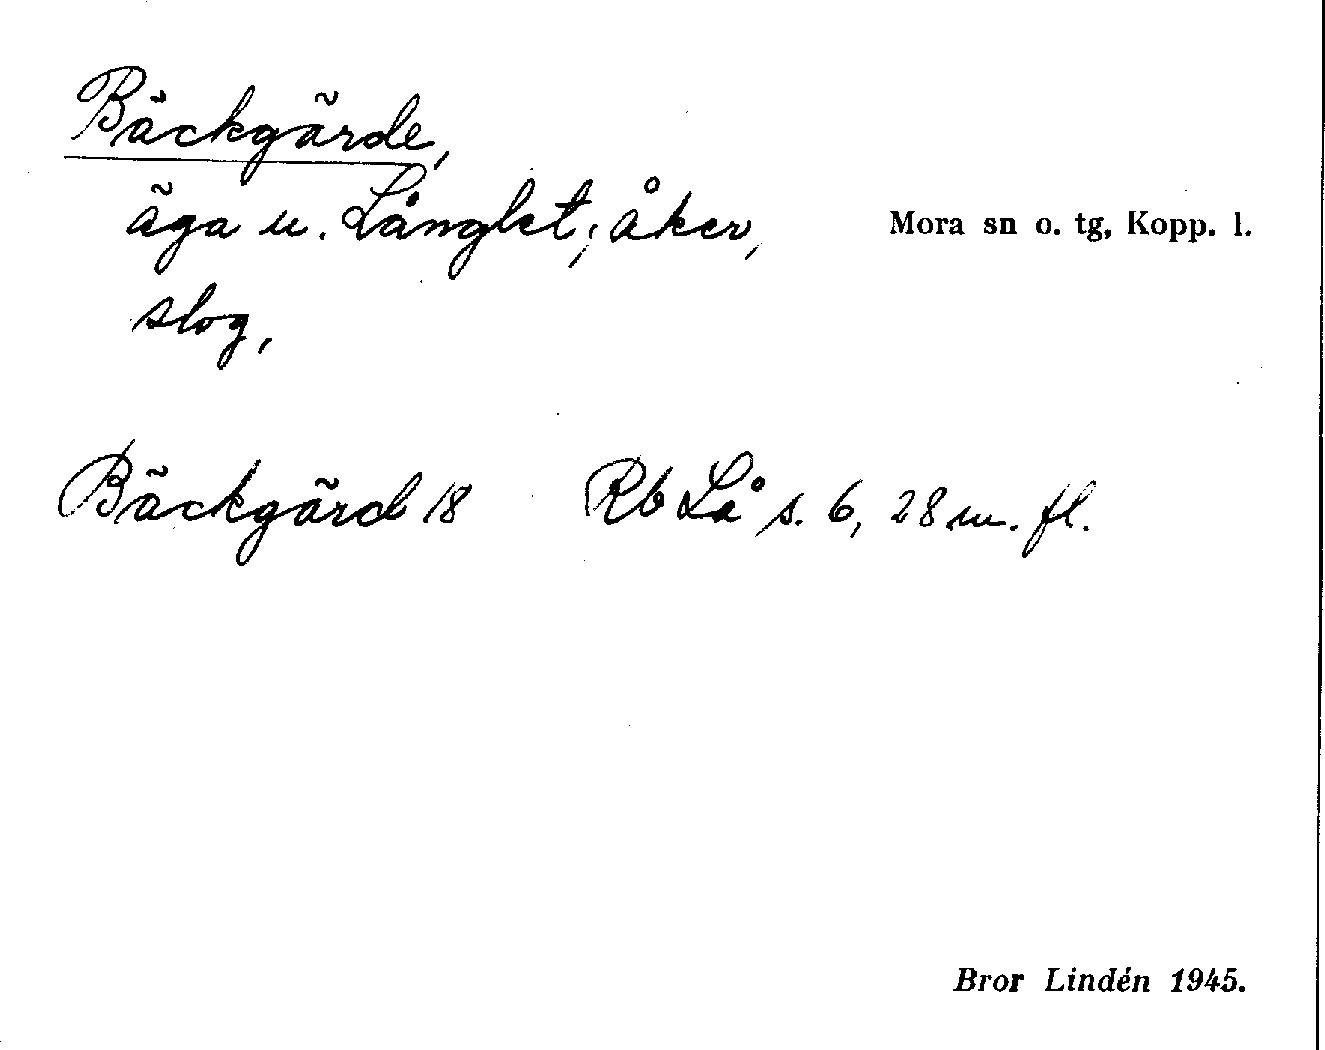 Bäckgärde,
äga u. Långlet; åker,
Mora sn o. tg, Kopp. l.
slog,
Bäckgärd 18 Rb Lå s. 6, 28 m. fl.
Bror Lindén 1945.